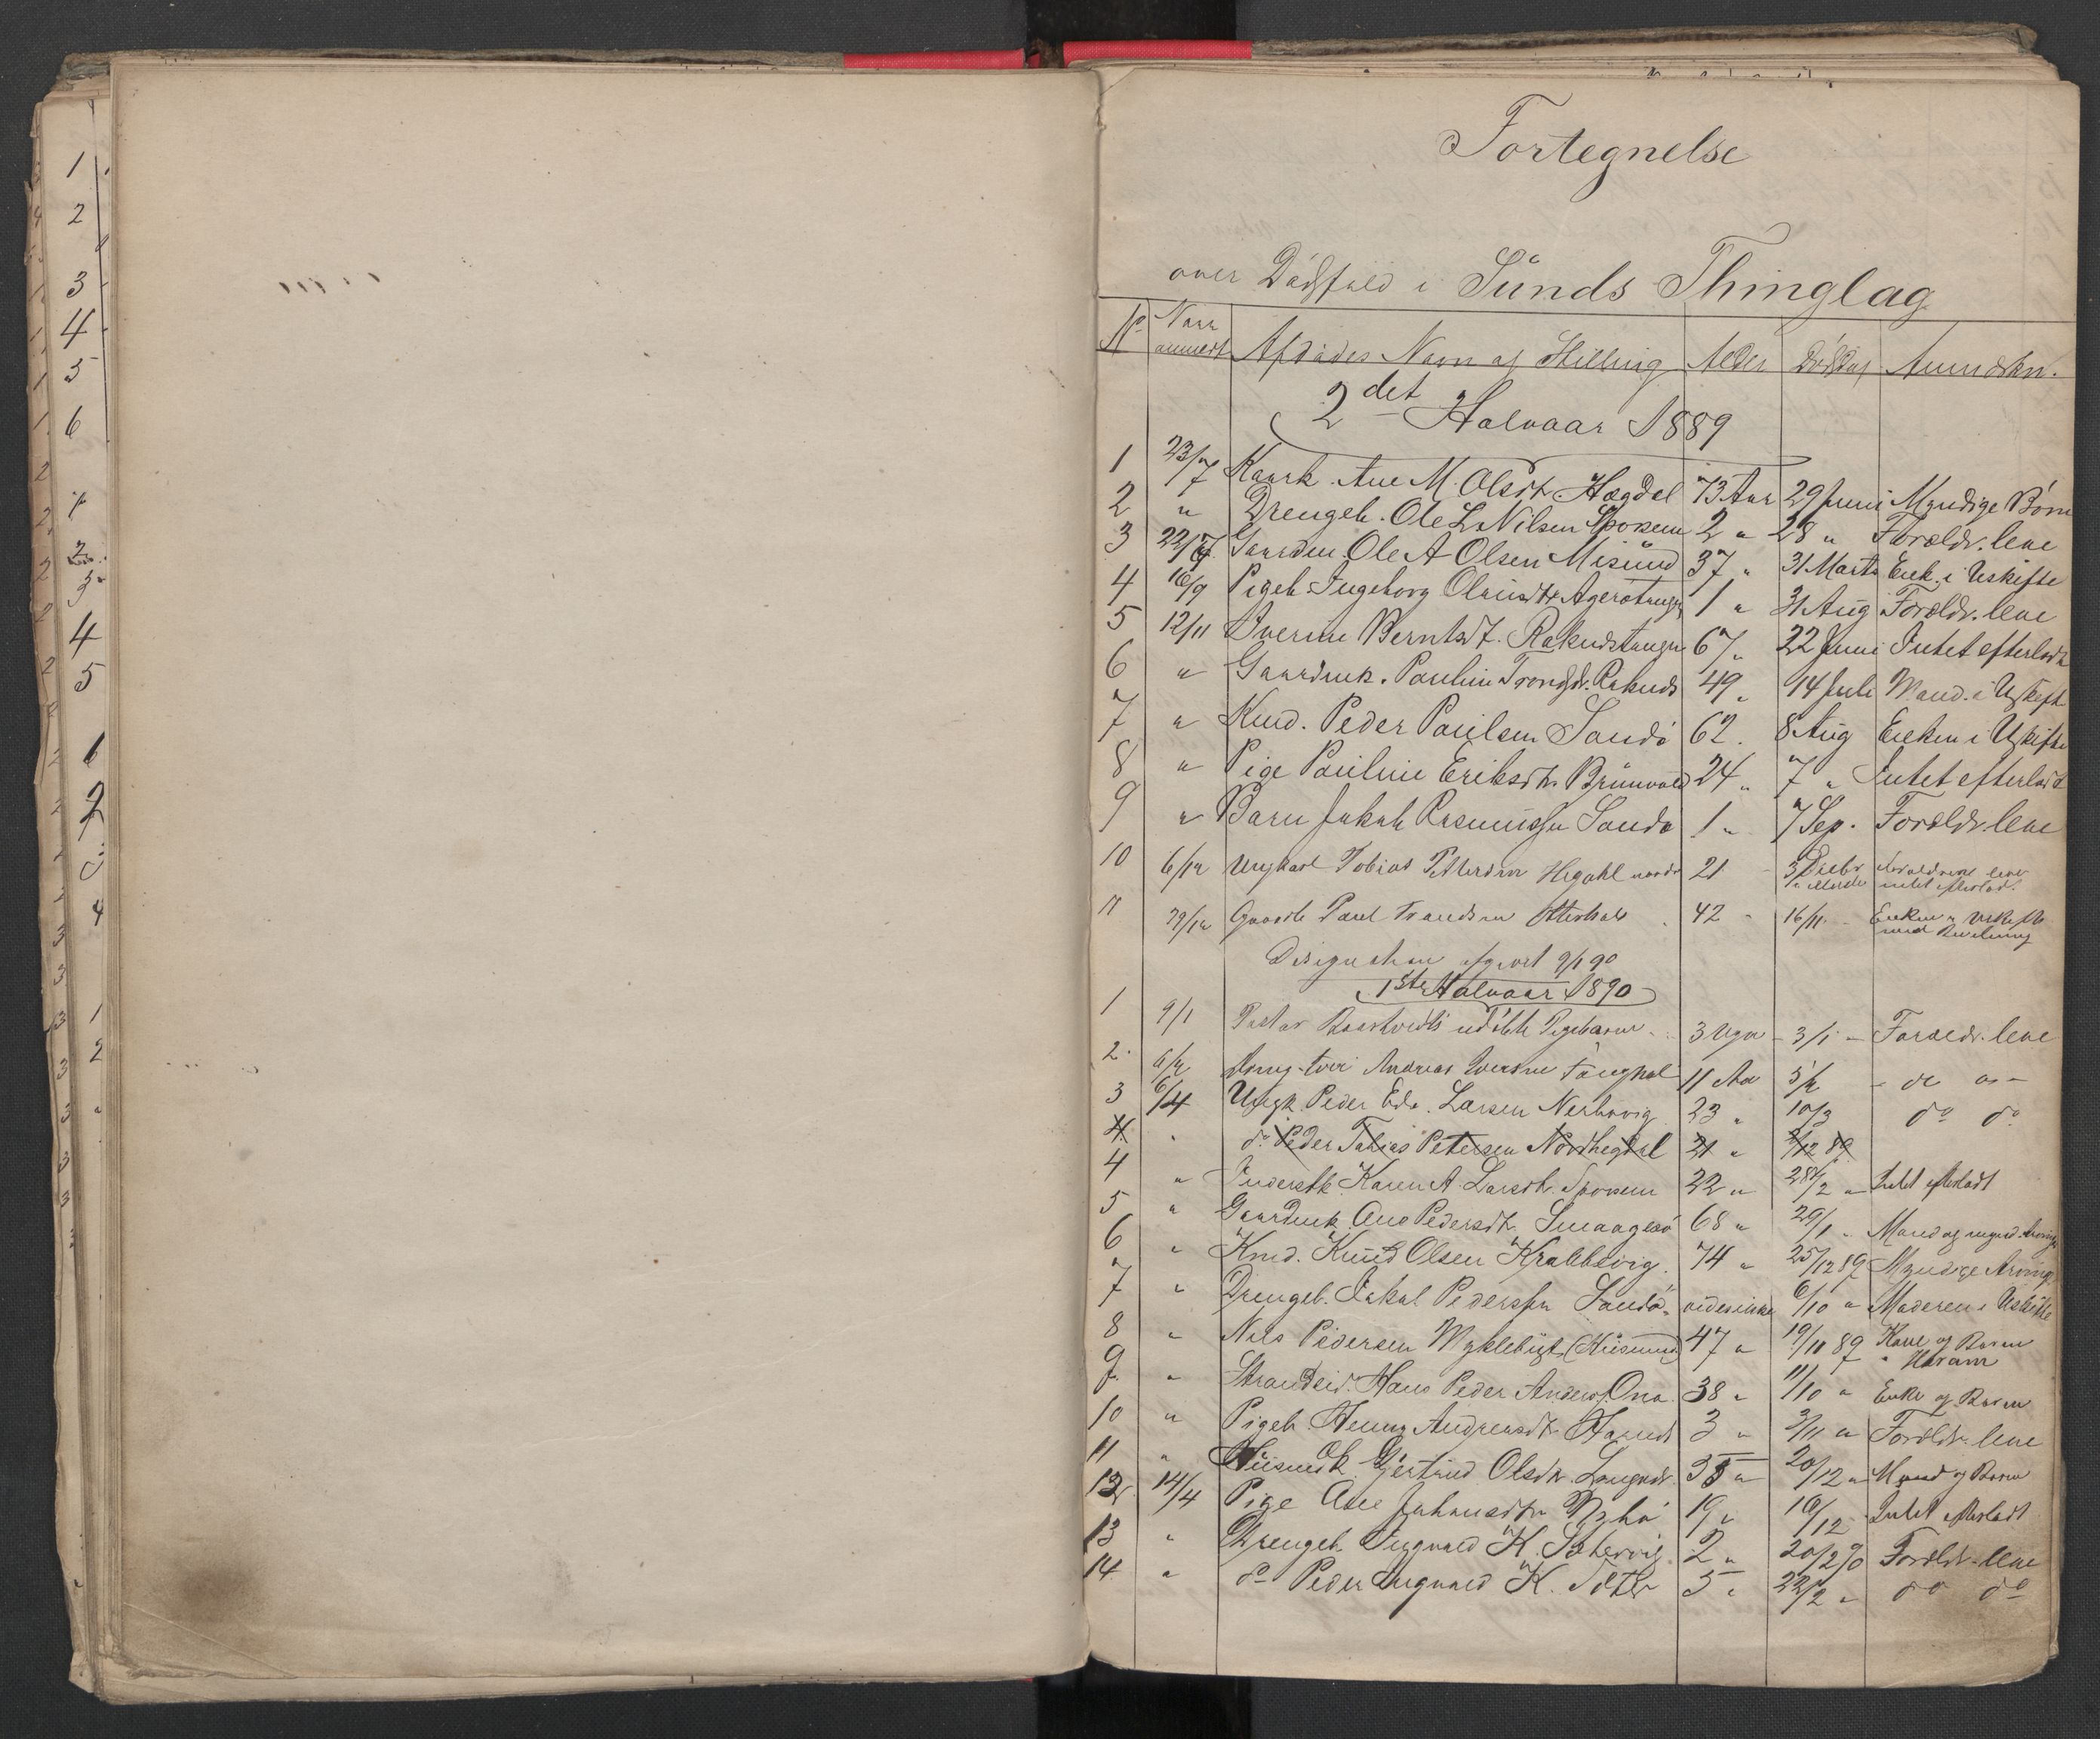 Fortegnelse
over Dødsfald i Sunds Thinglag
No Naar anmeldt Afdødes Navn og Stilling Alder Dødsdag Anmærkn.
2det Halvaar 1889
1 23/7 Kaark. Ane M. Olsdt. Hægdal 73 Aar 29 Juni Myndige Børn
2 " Drengeb. Ole L Nilsen Sporsem 2 " 28 " Forældr. leve
3 22/7 Gaardm. Ole A Olsen Misund 37 " 31 Marts Enk. i Uskifte
4 16/9 Pigeb. Ingeborg Agerøtangen 1 " 31 Aug Forældr. leve
5 12/11 Iverine Berntsdt. Rakndstangen 67 " 22 Juni Intet efterladt
6 " Gaardmk. Pauline Trondsdt. Raknds 49 " 14 Juli Mand. i Uskifte
7 " Kmd. Peder Paulsen Sandø 62 . 8 Aug Enken i Uskifte
8 " Pige Pauline Eriksdtr. Brunvold 24 " 7 " Intet efterladt
9 " Barn Jakob Rasmussen Sandø 1 " 7 Sep. Forældr. leve
10 6/12 Ungkarl Tobias Pettersen Hegdahl nordr 21 3 Decbr Forældrene lever intet efterlad.
11 29/12 Gaardb. Paul Trondsen Otterhals 42 - 16/11 - Enken i Uskifte med Bevilling
Designation afgivet 9/1 90
1ste Halvaar 1890
1 9/1 Pastor udøbte Pigebarn - 3 Uger - 3/1 - Forældr. leve
2 6/2 Andreas Iversen 11 Aar 5/2 - do do -
3 6/4 Ungk. Peder Edv. Larsen Nerbøvig 23 " 10/3 do do
4 " do Peder Tobias Petersen Nordhegdal 21 " 3/12 89
4 " Inderstk. Karen A. Larsdtr. Sporsem 22 " 28/2 " Intet efterladt
5 " Gaardmk. Ane Pedersdtr. Smaagesø 68 " 29/1 " Mand og mynd. Arvinger
6 " Kmd. Knud Olsen Krabbevig. 74 " 25/12 89 Myndige Arving.
7 " Drengeb. Jakob Pedersen Sandø 6/10 " Moderen i Uskifte
8 " Nils Pedersen Myklebust (Husmand) 47 " 19/11 89 Kone og Børn " Haram
9 " Strandsid. Hans Peder Anders. Ona 38 " 11/10 " Enke og Børn
10 " Pigeb. Henny Andreasdtr. Harnes 3 " 3/11 " Forældr. leve
11 " Husmdk. Gjertrud Olsdtr. Langnes 35 " 20/12 " Mand og Børn
12 14/4 Pige Ane Johansdtr Nybø 19 " 16/12 Intet efterladt
13 " Drengeb. Ingvald K. Sætervig. 2 " 20/2 90 Forældr. leve
14 " do Peder Ingvald K. 5 " 22/2 " do do
1
2
3
4
5
6
4
5
1
2
4
1
2